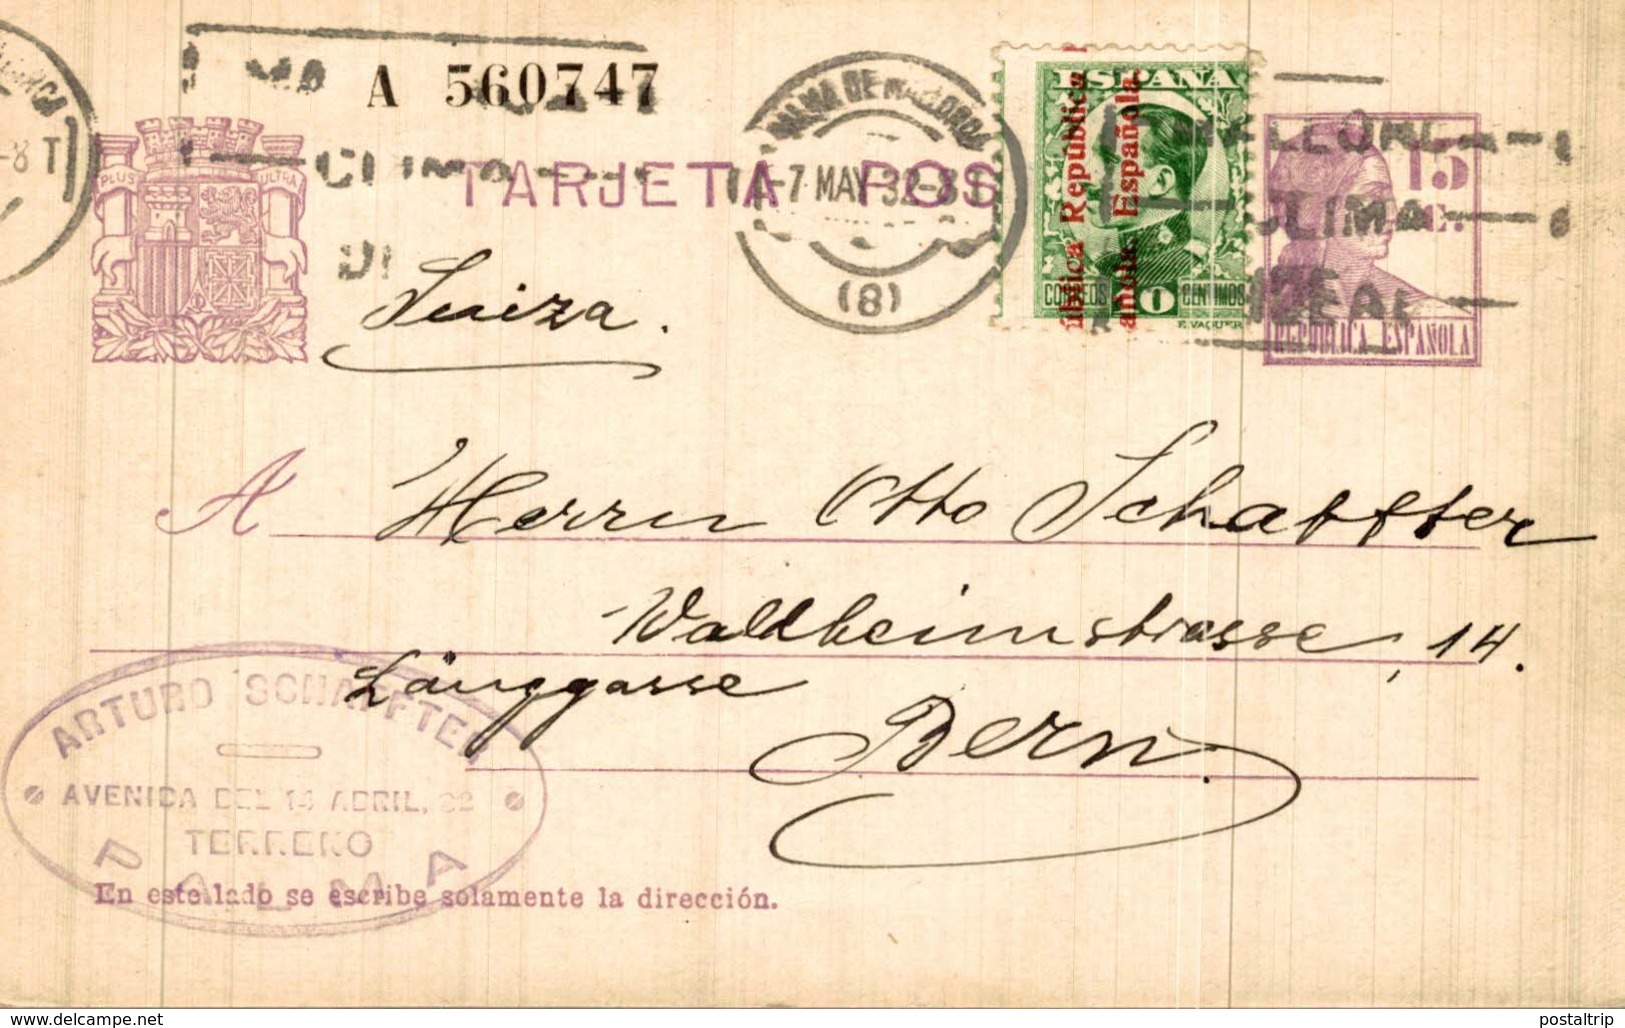 A 560747
PLUS ULTRA
TARJETA POS
PALMA DE MALLORCA
7 MAY 32
(8)
ESPAÑA
ública Republica
añola. Española.
CORREOS CENTIMOS
E. VAQUER
15 c.
REPUBLICA ESPAÑOLA
MALLORCA
CLIMA
IDEAL
CLIMA
Suiza.
A Herrn Otto Schaffter
Waldheimstrasse, 14.
Länggasse
Bern.
ARTURO SCHAFFTER
AVENIDA DEL 14 ABRIL, 32
TERRENO
PALMA
En este lado se escribe solamente la dirección.
www.delcampe.net
postaltrip